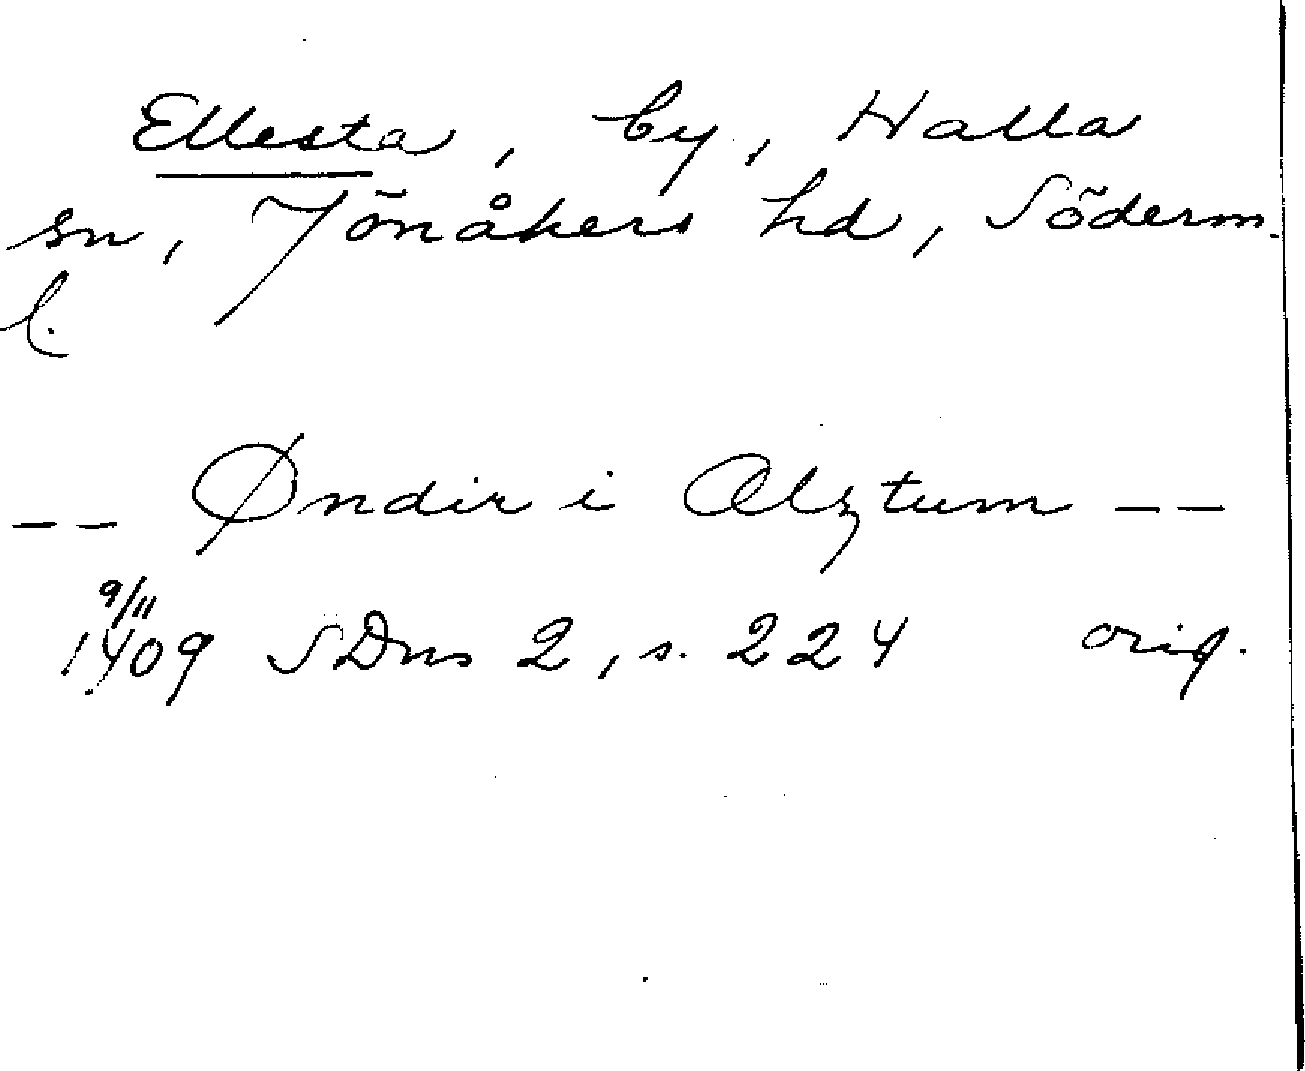 Ellesta, by, Halla
sn, Jönåkers hd, Söderm.
l.
-- Øndir i Elztum --
9/11
1409 SDns 2, s. 224 orig.